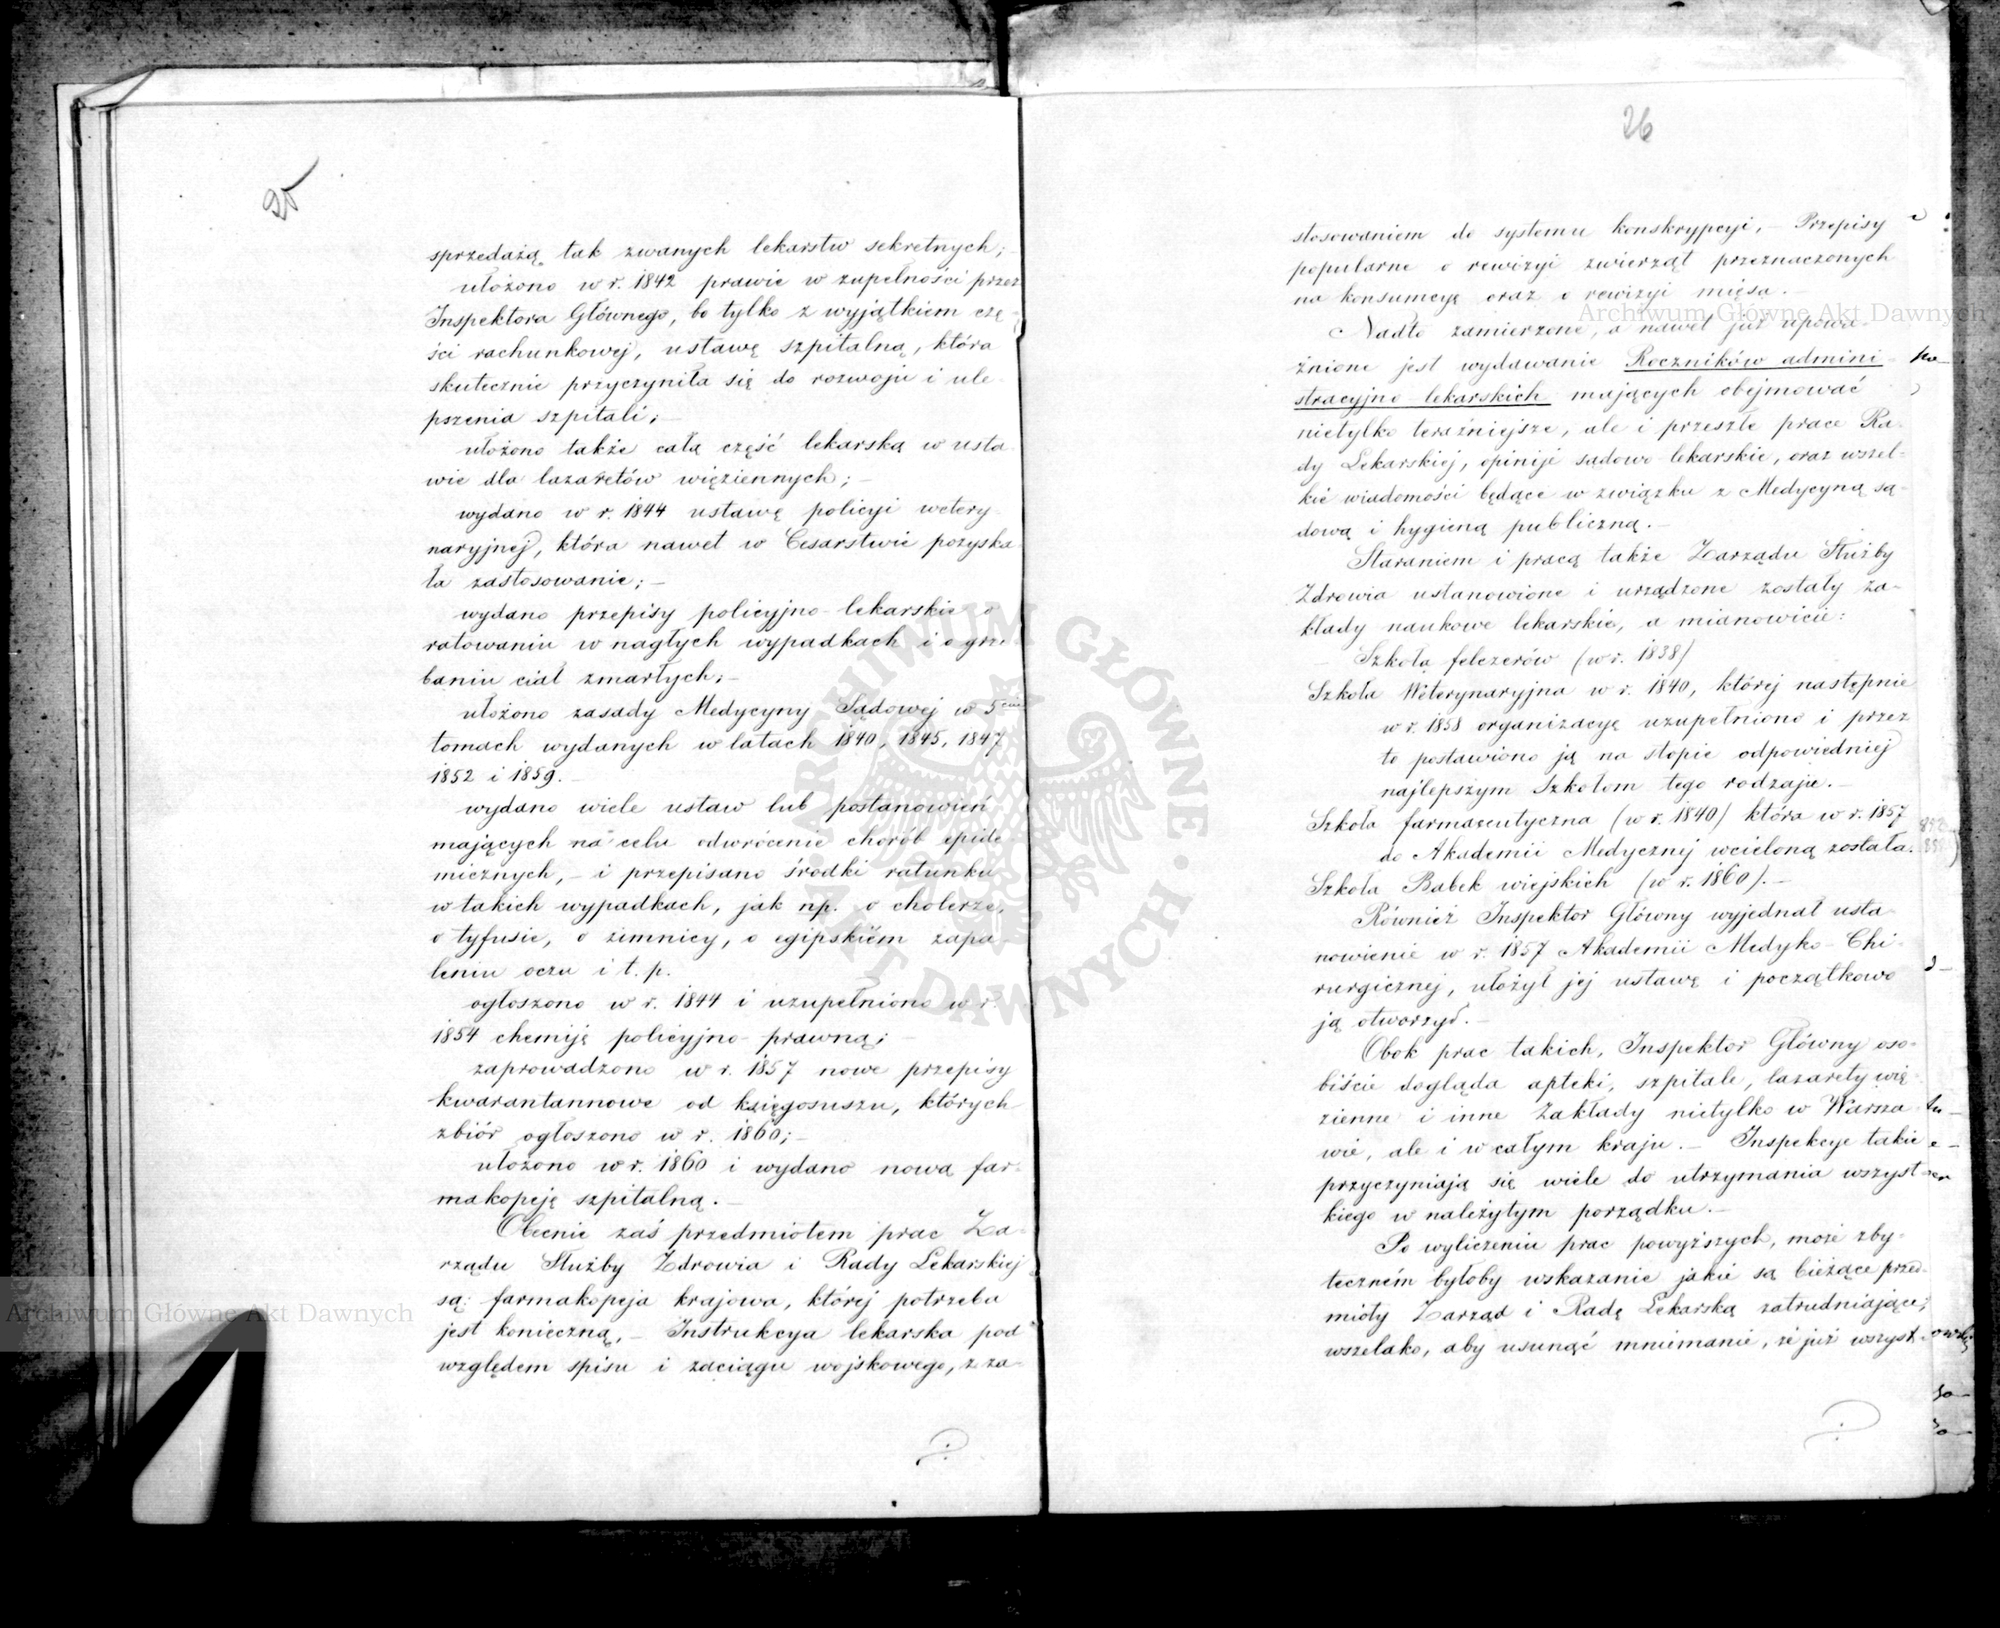 25
sprzedażą tak zwanych lekarstw sekretnych;
ułożono w r. 1842 prawie w zupełności przez
Inspektora Głównego, bo tylko z wyjątkiem czę-
ści rachunkowej, ustawę szpitalną, która
skutecznie przyczyniła się do rozwoju i ule-
pszenia szpitali; –
ułożono także całą część lekarską w usta-
wie dla lazaretów więziennych; –
wydano w r. 1844 ustawę policyi wetery-
naryjnej, która nawet w Cesarstwie pozyska-
ła zastosowanie; –
wydano przepisy policyjno-lekarskie o
ratowaniu w nagłych wypadkach i o grze-
baniu ciał zmarłych; –
ułożono zasady Medycyny Sądowej w 5ciu
tomach wydanych w latach 1840, 1845, 1847
1852 i 1859. –
wydano wiele ustaw lub postanowień
mających na celu odwrócenie chorób epide-
micznych, – i przepisano środki ratunku
w takich wypadkach, jak np. o cholerze,
o tyfusie, o zimnicy, o egipskiém zapa-
leniu oczu i t. p.
ogłoszono w r. 1844 i uzupełniono w r.
1854 chemiję policyjno-prawną; –
zaprowadzono w r. 1857 nowe przepisy
kwarantannowe od księgosuszu, których
zbiór ogłoszono w r. 1860; –
ułożono w r. 1860 i wydano nową far-
makopeję szpitalną. –
Obecnie zaś przedmiotem prac Za-
rządu Służby Zdrowia i Rady Lekarskiej
są: farmakopeja krajowa, której potrzeba
jest konieczną, – Instrukcya lekarska pod
względem spisu i zaciągu wojskowego, z za-
26
stosowaniem do systemu konskrypcyi, – Przepisy
popularne o rewizyi zwierząt przeznaczonych
na konsumcyę oraz o rewizyi mięsa. –
Nadto zamierzone, a nawet już upowa-
żnione jest wydawanie Roczników admini-
stracyjno-lekarskich mających obejmować
nietylko teraźniejsze, ale i przeszłe prace Ra-
dy Lekarskiej, opinije sądowo-lekarskie, oraz wszel-
kie wiadomości będące w związku z Medycyną są-
dową i hygieną publiczną. –
Staraniem i pracą także Zarządu Służby
Zdrowia ustanowione i urządzone zostały Za-
kłady naukowe lekarskie, a mianowicie:
Szkoła felczerów (w r. 1838)
Szkoła Weterynaryjna w r. 1840, której następnie
w r. 1858 organizacyę uzupełniono i przez
to postawiono ją na stopie odpowiedniej
najlepszym Szkołom tego rodzaju. –
Szkoła farmaceutyczna (w r. 1840) która w r. 1857
do Akademii Medycznej wcieloną została.
Szkoła Babek wiejskich (w r. 1860). –
Również Inspektor Główny wyjednał usta-
nowienie w r. 1857 Akademii Medyko-Chi-
rurgicznej, ułożył jej ustawę i początkowo
ją otworzył. –
Obok prac takich, Inspektor Główny oso-
biście dogląda apteki, szpitale, lazarety wię-
zienne i inne Zakłady nietylko w Warsza-
wie, ale i w całym kraju. – Inspekcye takie
przyczyniają się wiele do utrzymania wszyst-
kiego w należytym porządku. –
Po wyliczeniu prac powyższych, może zby-
teczném byłoby wskazanie jakie są bieżące przed-
mioty Zarząd i Radę Lekarską zatrudniające;
wszelako, aby usunąć mniemanie, że już wszyst-
Archiwum Główne Akt Dawnych
Archiwum Główne Akt Dawnych
ARCHIWUM GŁÓWNE AKT DAWNYCH